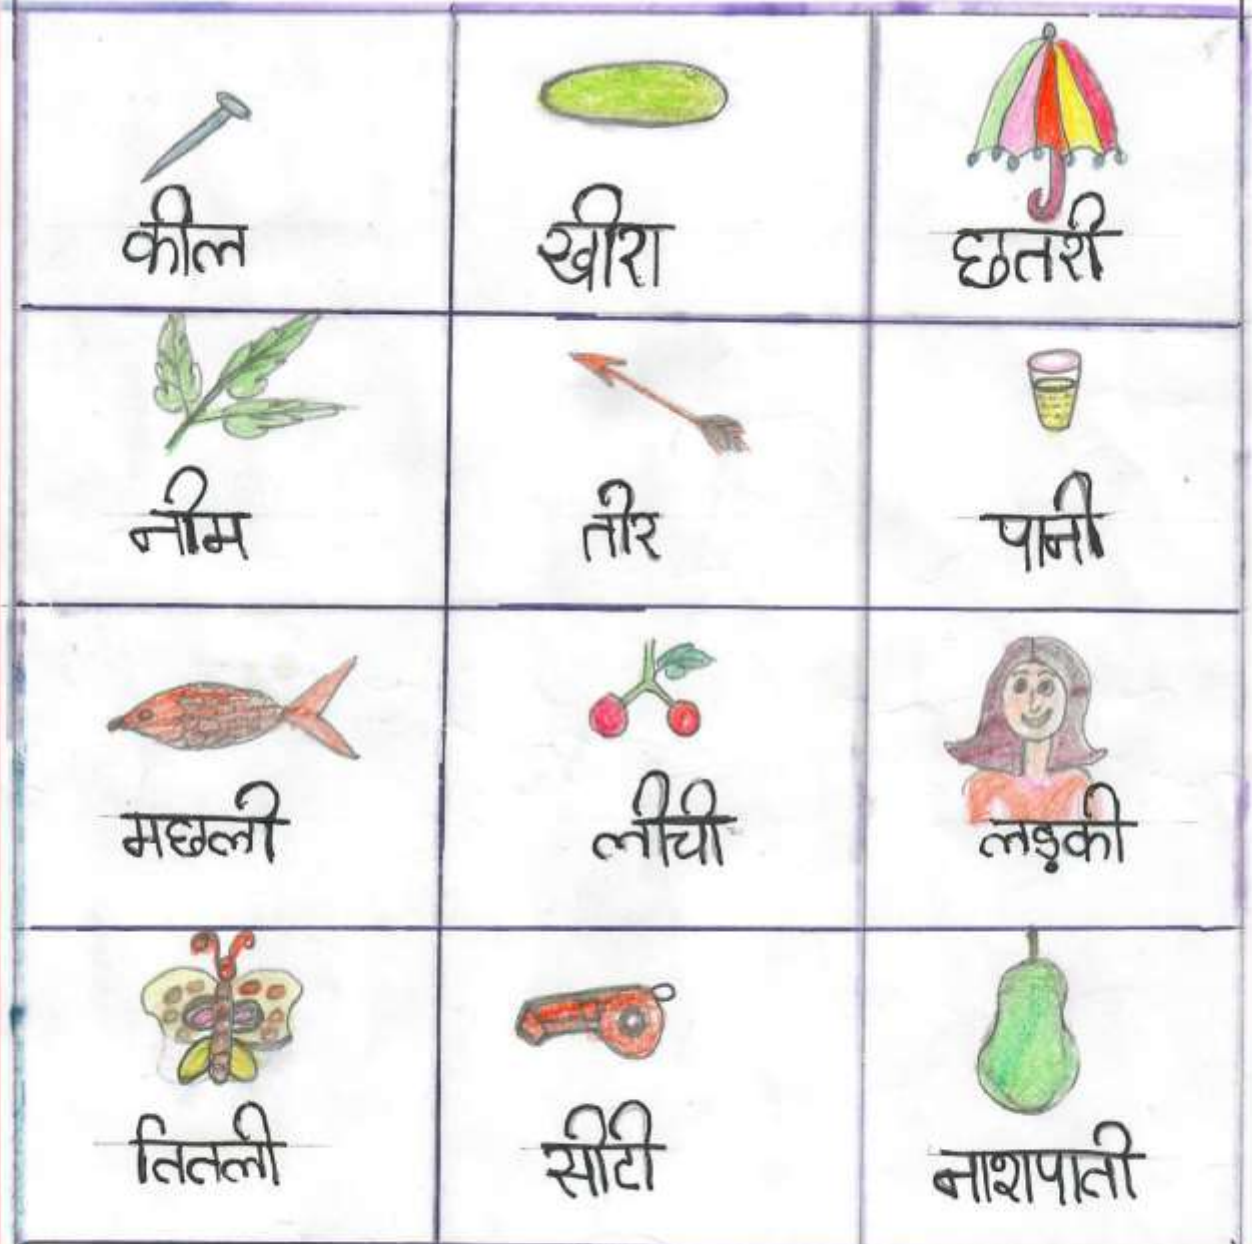 कील
खीरा
छतरी
नीम
तीर
पानी
मछली
लीची
लड़की
तितली
सीटी
नाशपाती